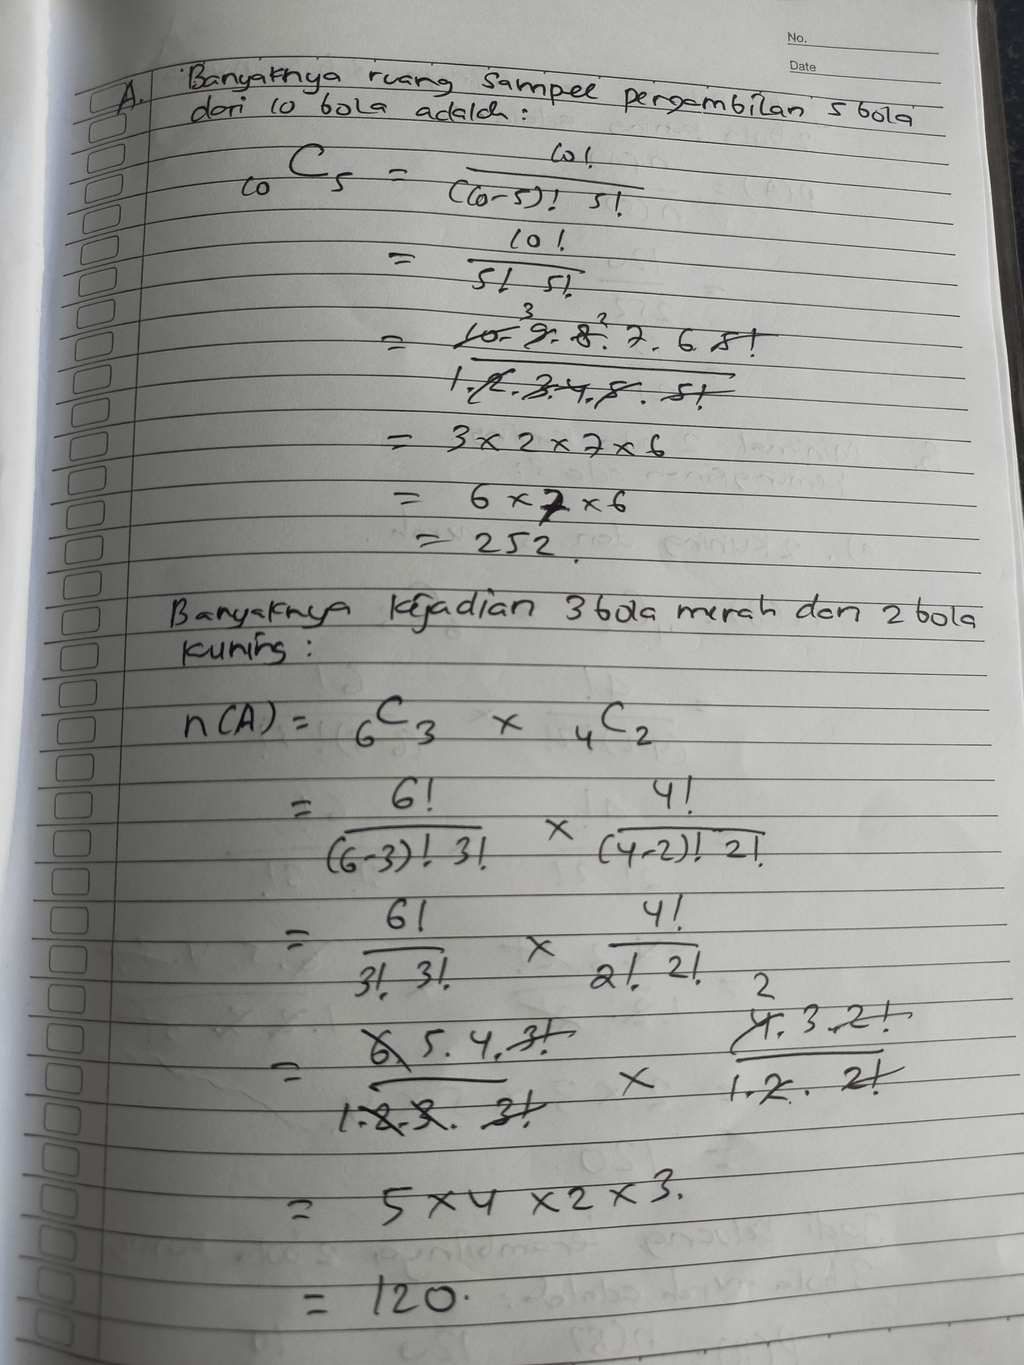 No.
Date
A. Banyaknya ruang sampel pengambilan 5 bola
dari 10 bola adalah :
10 C 5 = 10! / (10-5)! 5!
= 10! / 5! 5!
= 10. 9. 8. 7. 6. 5! / 1. 2. 3. 4. 5. 5!
3 2
= 3 x 2 x 7 x 6
= 6 x 7 x 6
= 252.
Banyaknya kejadian 3 bola merah dan 2 bola
kuning :
n(A) = 6 C 3 x 4 C 2
= 6! / (6-3)! 3! x 4! / (4-2)! 2!
= 6! / 3! 3! x 4! / 2! 2!
2
= 6. 5. 4. 3! / 1. 2. 3. 3! x 4. 3. 2! / 1. 2. 2!
= 5 x 4 x 2 x 3.
= 120.